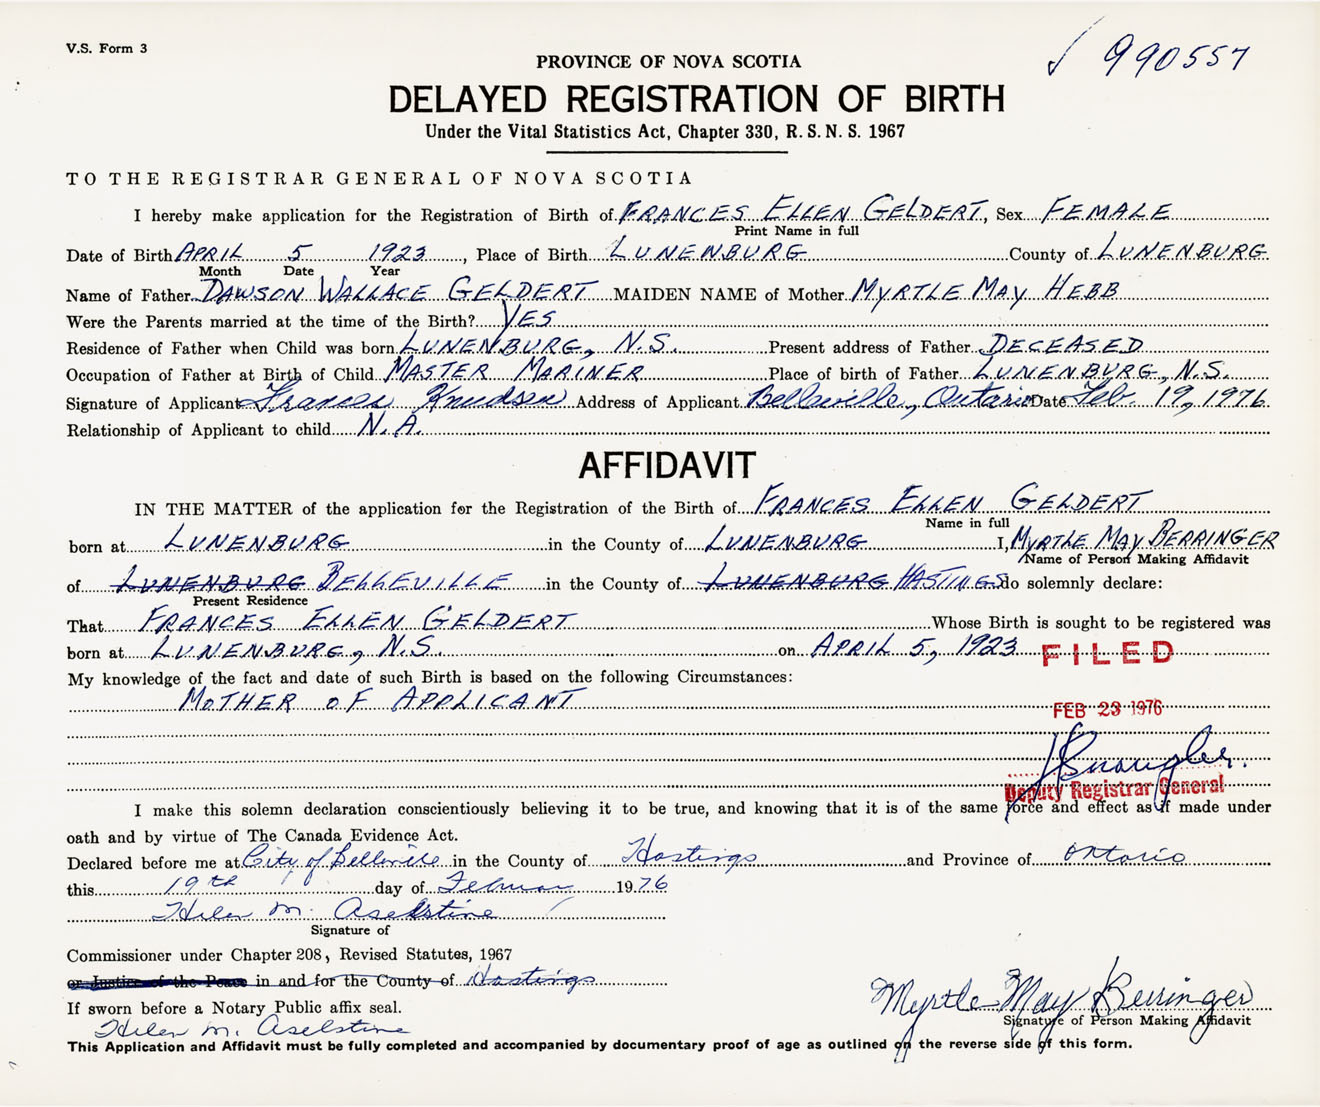 V.S. Form 3
√ 990557
PROVINCE OF NOVA SCOTIA
DELAYED REGISTRATION OF BIRTH
Under the Vital Statistics Act, Chapter 330, R.S.N.S. 1967
TO THE REGISTRAR GENERAL OF NOVA SCOTIA
I hereby make application for the Registration of Birth of FRANCES ELLEN GELDERT, Sex FEMALE
Print Name in full
Date of Birth APRIL 5 1923, Place of Birth LUNENBURG County of LUNENBURG
Month Date Year
Name of Father DAWSON WALLACE GELDERT MAIDEN NAME of Mother MYRTLE MAY HEBB
Were the Parents married at the time of the Birth? YES
Residence of Father when Child was born LUNENBURG, N.S. Present address of Father DECEASED
Occupation of Father at Birth of Child MASTER MARINER Place of birth of Father LUNENBURG, N.S.
Signature of Applicant Frances Knudsen Address of Applicant Belleville, Ontario Date Feb. 19, 1976
Relationship of Applicant to child N.A.
AFFIDAVIT
IN THE MATTER of the application for the Registration of the Birth of FRANCES ELLEN GELDERT
Name in full
born at LUNENBURG in the County of LUNENBURG I, MYRTLE MAY BERRINGER
Name of Person Making Affidavit
of LUNENBURG BELLEVILLE in the County of LUNENBURG HASTINGS do solemnly declare:
Present Residence
That FRANCES ELLEN GELDERT Whose Birth is sought to be registered was
born at LUNENBURG, N.S. on APRIL 5, 1923
FILED
My knowledge of the fact and date of such Birth is based on the following Circumstances:
MOTHER OF APPLICANT
FEB 23 1976
Deputy Registrar General
I make this solemn declaration conscientiously believing it to be true, and knowing that it is of the same force and effect as if made under
oath and by virtue of The Canada Evidence Act.
Declared before me at City of Belleville in the County of Hastings and Province of Ontario
this 19th day of February 1976
Helen M. Aselstine
Signature of
Commissioner under Chapter 208, Revised Statutes, 1967
or Justice of the Peace in and for the County of Hastings
If sworn before a Notary Public affix seal.
Helen M. Aselstine
Myrtle May Berringer
Signature of Person Making Affidavit
This Application and Affidavit must be fully completed and accompanied by documentary proof of age as outlined on the reverse side of this form.